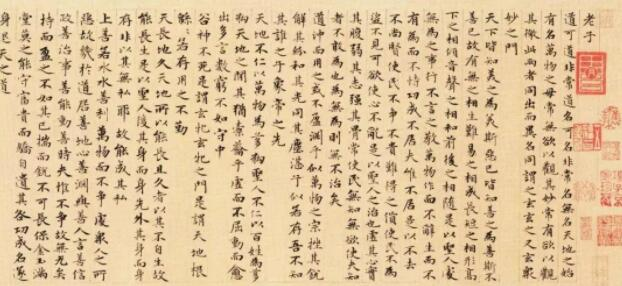 老子
道可道非常道名可名非常名無名天地之始
有名萬物之母常無欲以觀其妙常有欲以觀
其徼此兩者同出而異名同謂之玄玄之又玄衆
妙之門
天下皆知美之為美斯惡已皆知善之為善斯不
善已故有無之相生難易之相成長短之相形高
下之相傾音聲之相和前後之相隨是以聖人處
無為之事行不言之教萬物作而不辭生而不
有為而不恃功成不居夫惟不居是以不去
不尚賢使民不爭不貴難得之貨使民不為
盜不見可欲使心不亂是以聖人之治也虛其心實
其腹弱其志强其骨常使民無知無欲使夫知
者不敢為也為無為則無不治矣
道沖而用之或不盈淵乎似萬物之宗挫其銳
解其紛和其光同其塵湛乎似若存吾不知
其誰之子象帝之先
天地不仁以萬物為芻狗聖人不仁以百姓為芻
狗天地之間其猶橐籥乎虛而不屈動而愈
出多言數窮不如守中
谷神不死是謂玄牝玄牝之門是謂天地根
綿綿若存用之不勤
天長地久天地所以能長且久者以其不自生故
能長生是以聖人後其身而身先外其身而身
存非以其無私耶故能成其私
上善若水水善利萬物而不爭處衆人之所
惡故幾於道居善地心善淵與善人言善信
政善治事善能動善時夫惟不爭故無尤矣
持而盈之不如其已揣而銳不可長保金玉滿
堂莫之能守富貴而驕自遺其咎功成名遂
身退天之道